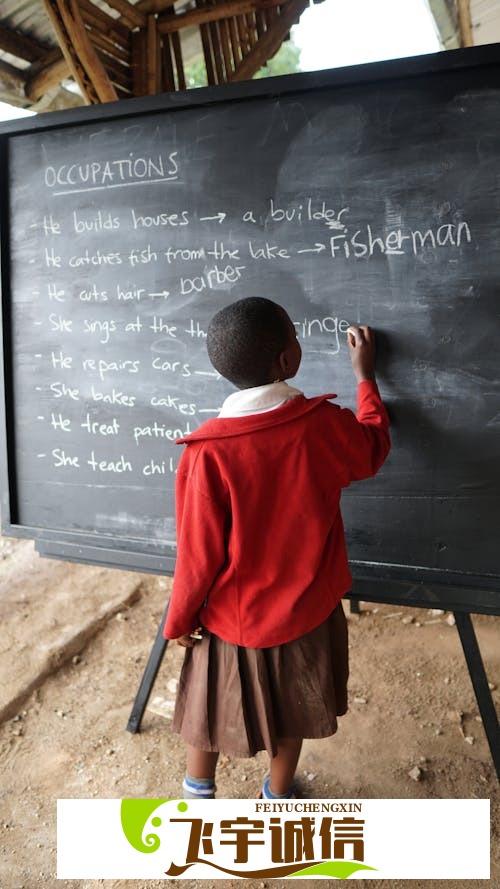 OCCUPATIONS
- He builds houses → a builder
- He catches fish from the lake → Fisherman
- He cuts hair → barber
- She sings at the the singe
- He repairs cars →
- She bakes cakes →
- He treat patient
- She teach chil
FEIYUCHENGXIN
飞宇诚信